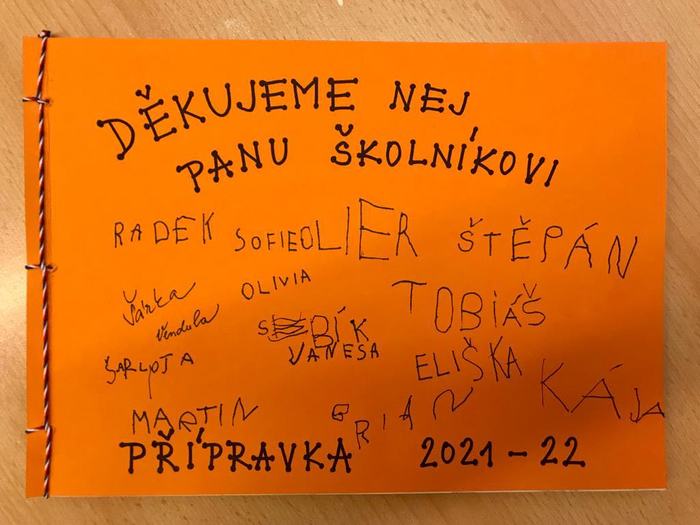 DĚKUJEME NEJ
PANU ŠKOLNÍKOVI
RADEK SOFIE OLIER ŠTĚPÁN
Šárka OLIVIA TOBIÁŠ
Vendula BÍK
ŠARLOTA VANESA ELIŠKA KÁJA
MARTIN BRIAN
PŘÍPRAVKA 2021-22